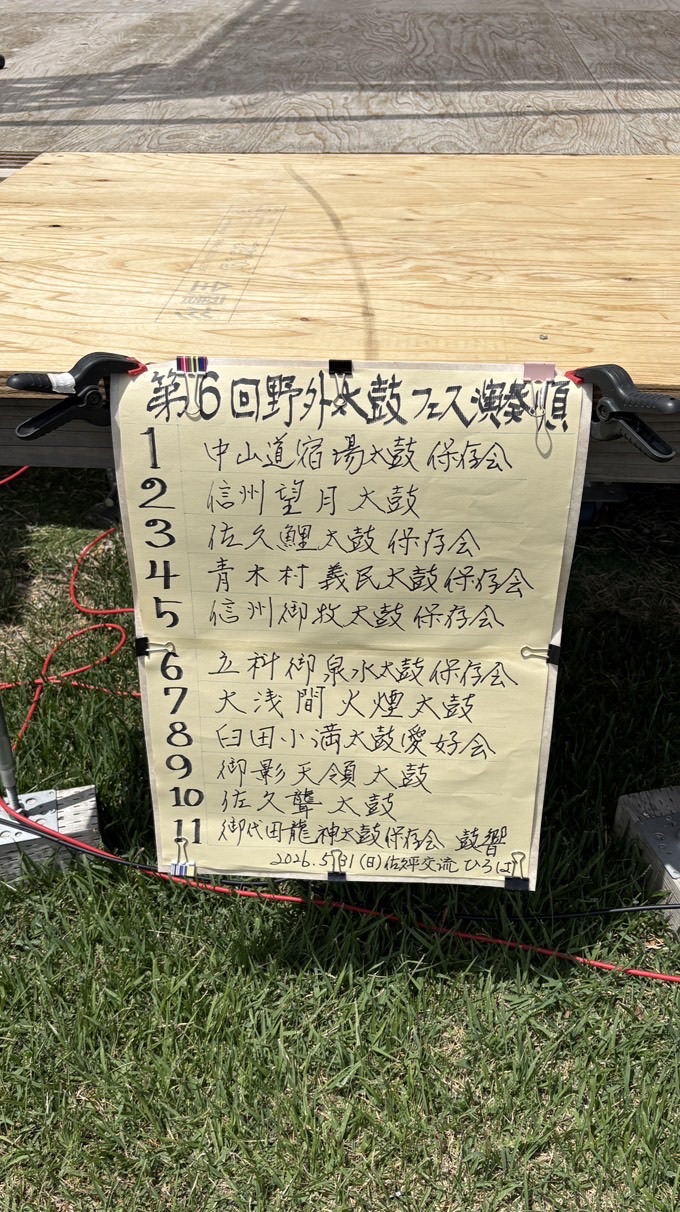 第6回野外太鼓フェス演奏順
1 中山道宿場太鼓保存会
2 信州望月太鼓
3 佐久鯉太鼓保存会
4 青木村義民太鼓保存会
5 信州御牧太鼓保存会
6 立科御泉水太鼓保存会
7 大浅間火煙太鼓
8 臼田小満太鼓愛好会
9 御影天領太鼓
10 佐久聾太鼓
11 御代田龍神太鼓保存会 鼓響
2026.5/31(日)佐久平交流ひろば